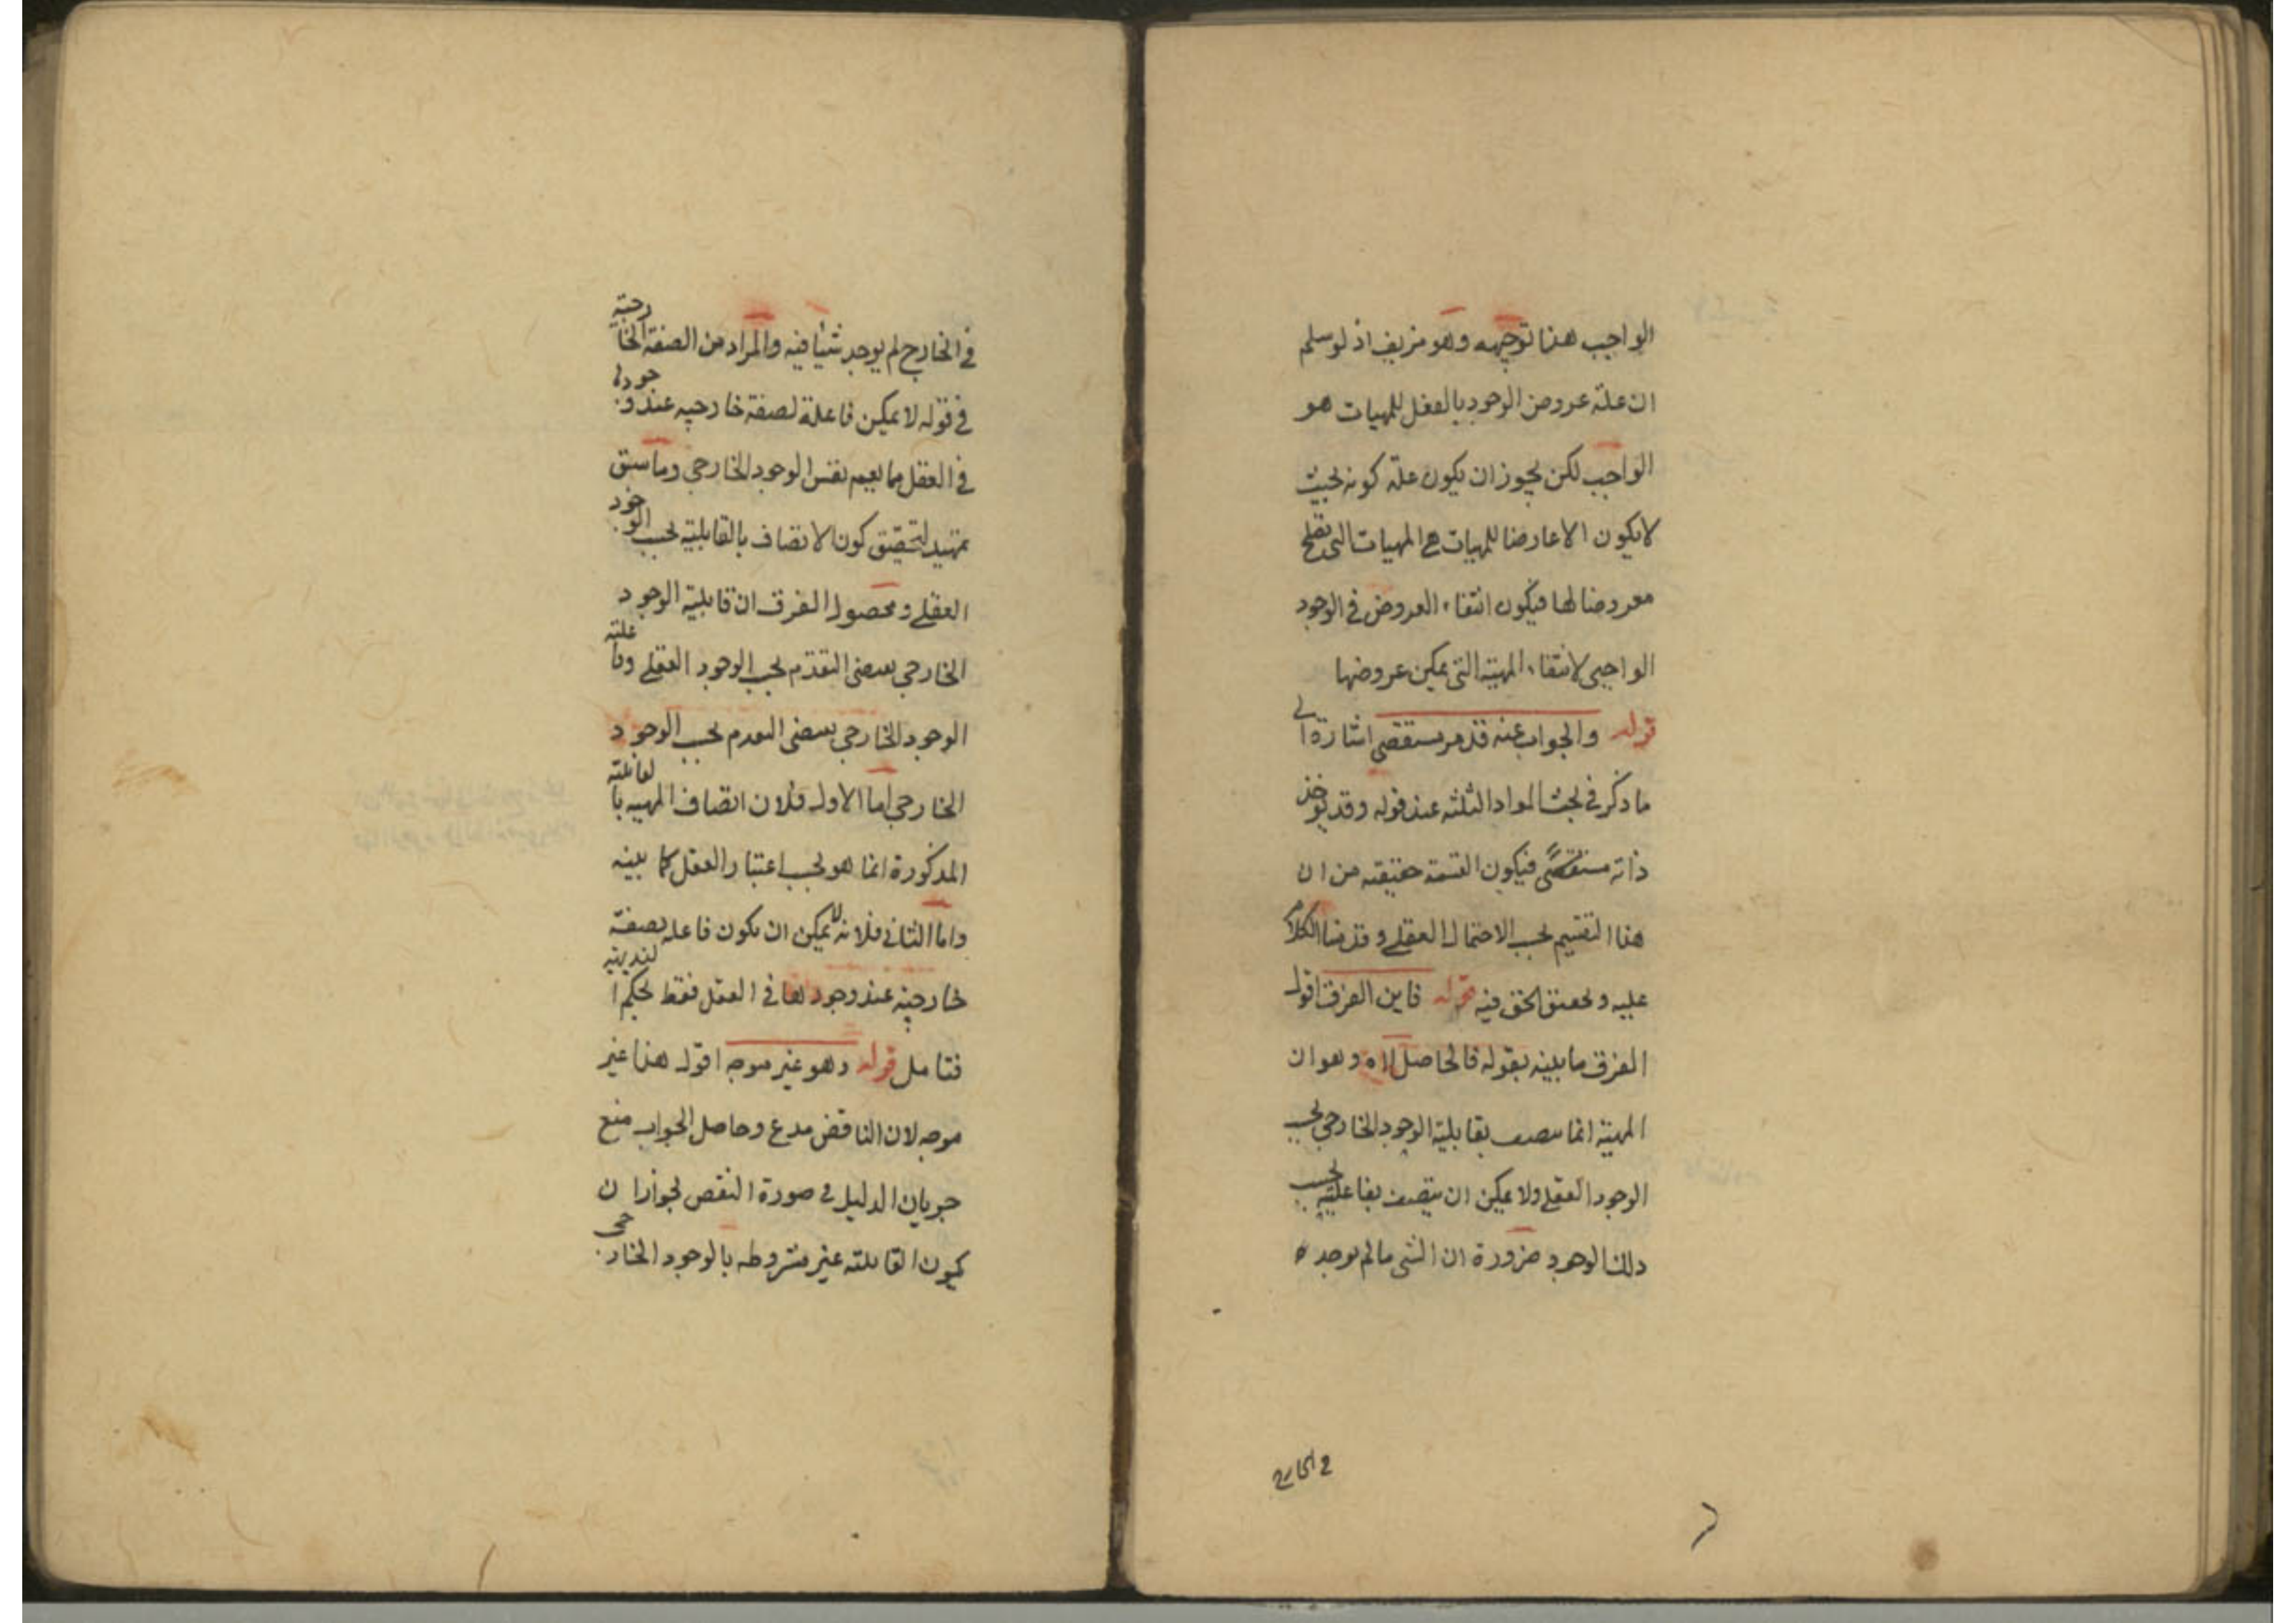 الواجب هذا توجيهه وهو مزيف اذ لو سلم
ان علة عروض الوجود بالفعل للمهيات هو
الواجب لكن يجوز ان يكون علة كونه بحيث
لا يكون الا عارضا للمهيات هي المهيات التى تصلح
معروضا لها فيكون انتفاء العروض فى الوجود
الواجبى لانتفاء المهية التى يمكن عروضها
قوله والجواب عنه قد مر مستقصى اشارة الى
ما ذكر فى بحث المواد الثلثه عند قوله وقد يؤخذ
ذاته فيكون القسمة حقيقته من ان
هذا التقسيم بحسب الاحتمال العقلى وقدمنا الكلام
عليه وتحقيق الحق فيه قوله فاين الفرق اقول
الفرق ما بينه بقوله فالحاصل اه وهو ان
المهية انما تتصف بقابلية الوجود الخارجى بحسب
الوجود العقلى ولا يمكن ان يتصف بفاعليته بحسب
ذلك الوجود ضرورة ان الشى ما لم يوجد
فى الخارج
فى الخارج لم يوجد شيئا فيه والمراد من الصفة الخارجية
فى قوله لا يمكن فاعلة لصفة خارجيه عند وجودها
فى العقل ما يعم نفس الوجود الخارجى وما سبق
تمهيد لتحقيق كون الاتصاف بالقابلية بحسب الوجود
العقلى ومحصول الفرق ان قابلية الوجود
الخارجى يقتضى التقدم بحسب الوجود العقلى وفاعلية
الوجود الخارجى يقتضى التقدم بحسب الوجود
الخارجى اما الاول فلان اتصاف المهيه بالقابلية
المذكورة انما هو بحسب اعتبار العقل كما بينه
واما الثانى فلانه لا يمكن ان يكون فاعله لصفة
خارجية عند وجودها فى العقل فقط بحكم البديهية
فتامل قوله وهو غير موجه اقول هذا غير
موجه لان الناقض مدع وحاصل الجواب منع
جريان الدليل فى صورة النقض لجواز ان
يكون القابلية غير مشروطه بالوجود الخارجى